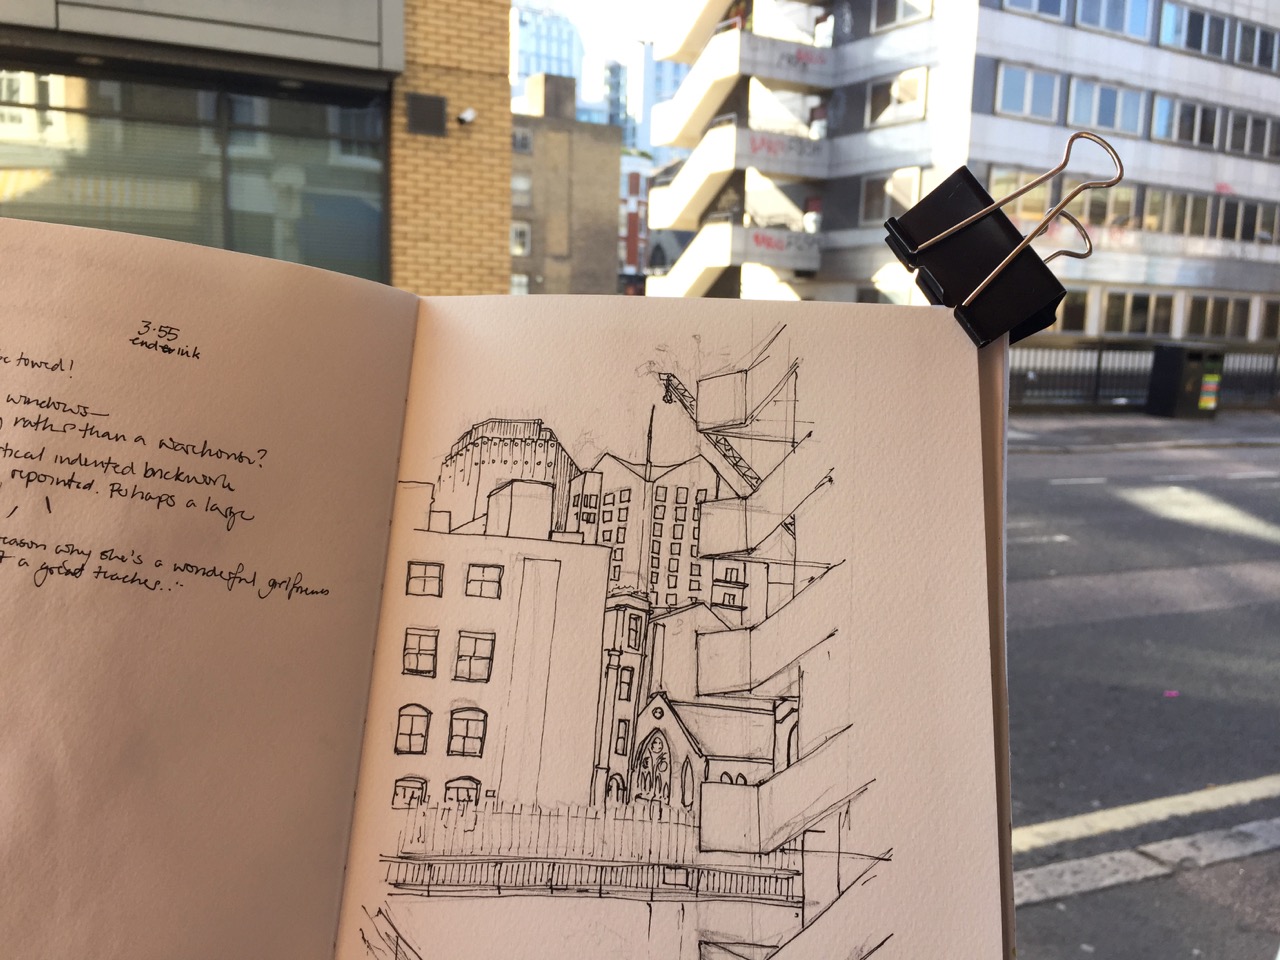 3.55
end ink
towed!
windows—
rather than a warehouse?
tical indented brickwork
repointed. Perhaps a large
reason why she's a wonderful girlfriend
a great teacher..